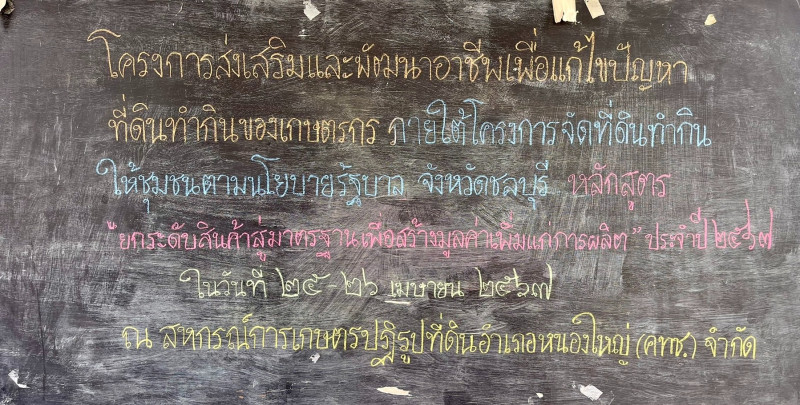 โครงการส่งเสริมและพัฒนาอาชีพเพื่อแก้ไขปัญหา
ที่ดินทำกินของเกษตรกร ภายใต้โครงการจัดที่ดินทำกิน
ให้ชุมชนตามนโยบายรัฐบาล จังหวัดชลบุรี หลักสูตร
"ยกระดับสินค้าสู่มาตรฐานเพื่อสร้างมูลค่าเพิ่มแก่การผลิต" ประจำปี ๒๕๖๗
ในวันที่ ๒๕-๒๖ เมษายน ๒๕๖๗
ณ สหกรณ์การเกษตรปฏิรูปที่ดินอำเภอหนองใหญ่ (คทช.) จำกัด